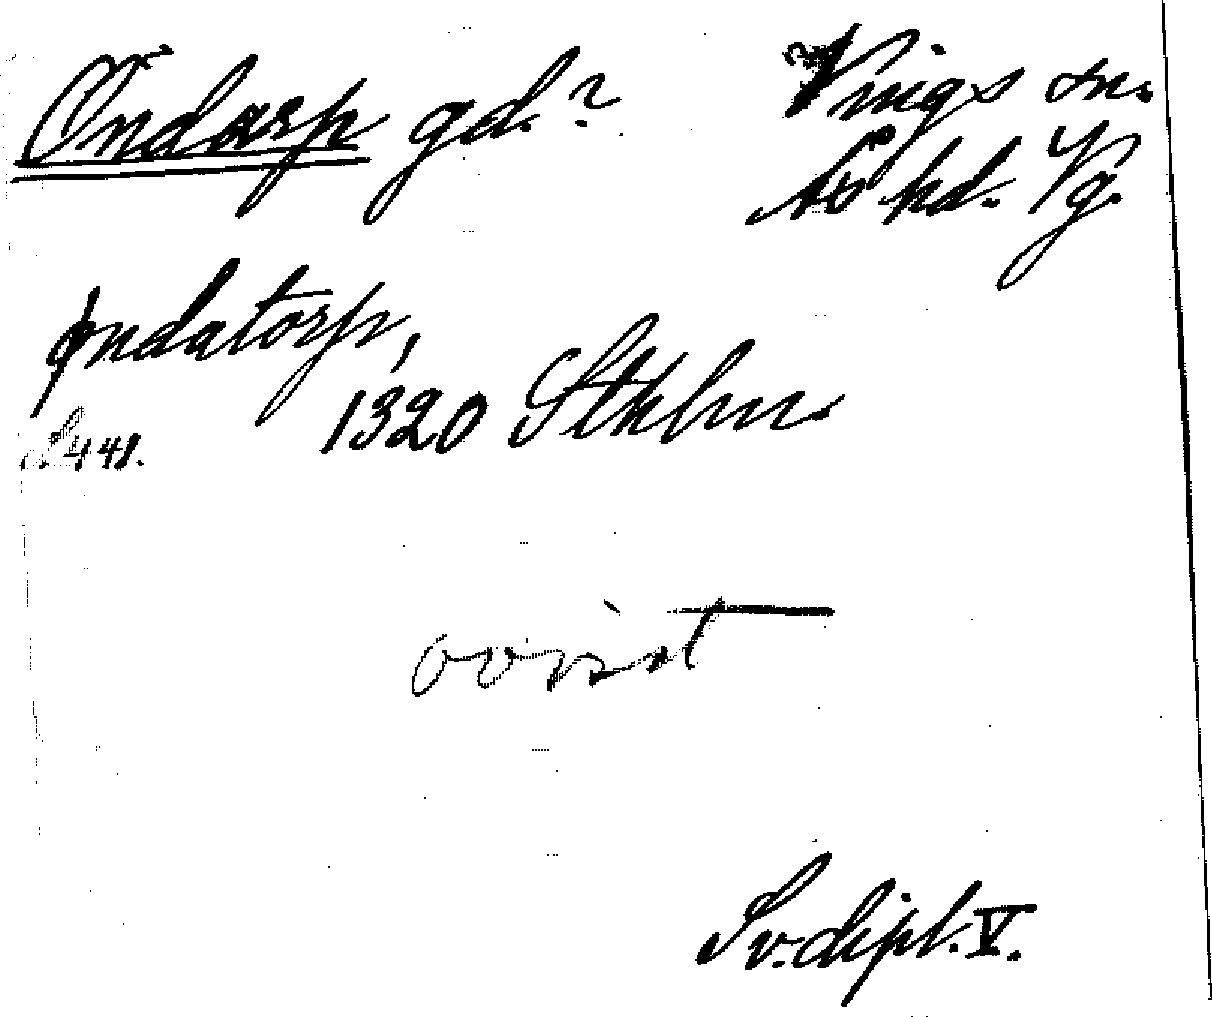 Öndarp gd.? ? Vings sn.
Ås hd. Vg.
øndatorp,
1320 Sthlm
S. 441.
ovisst
Sv. dipl. V.